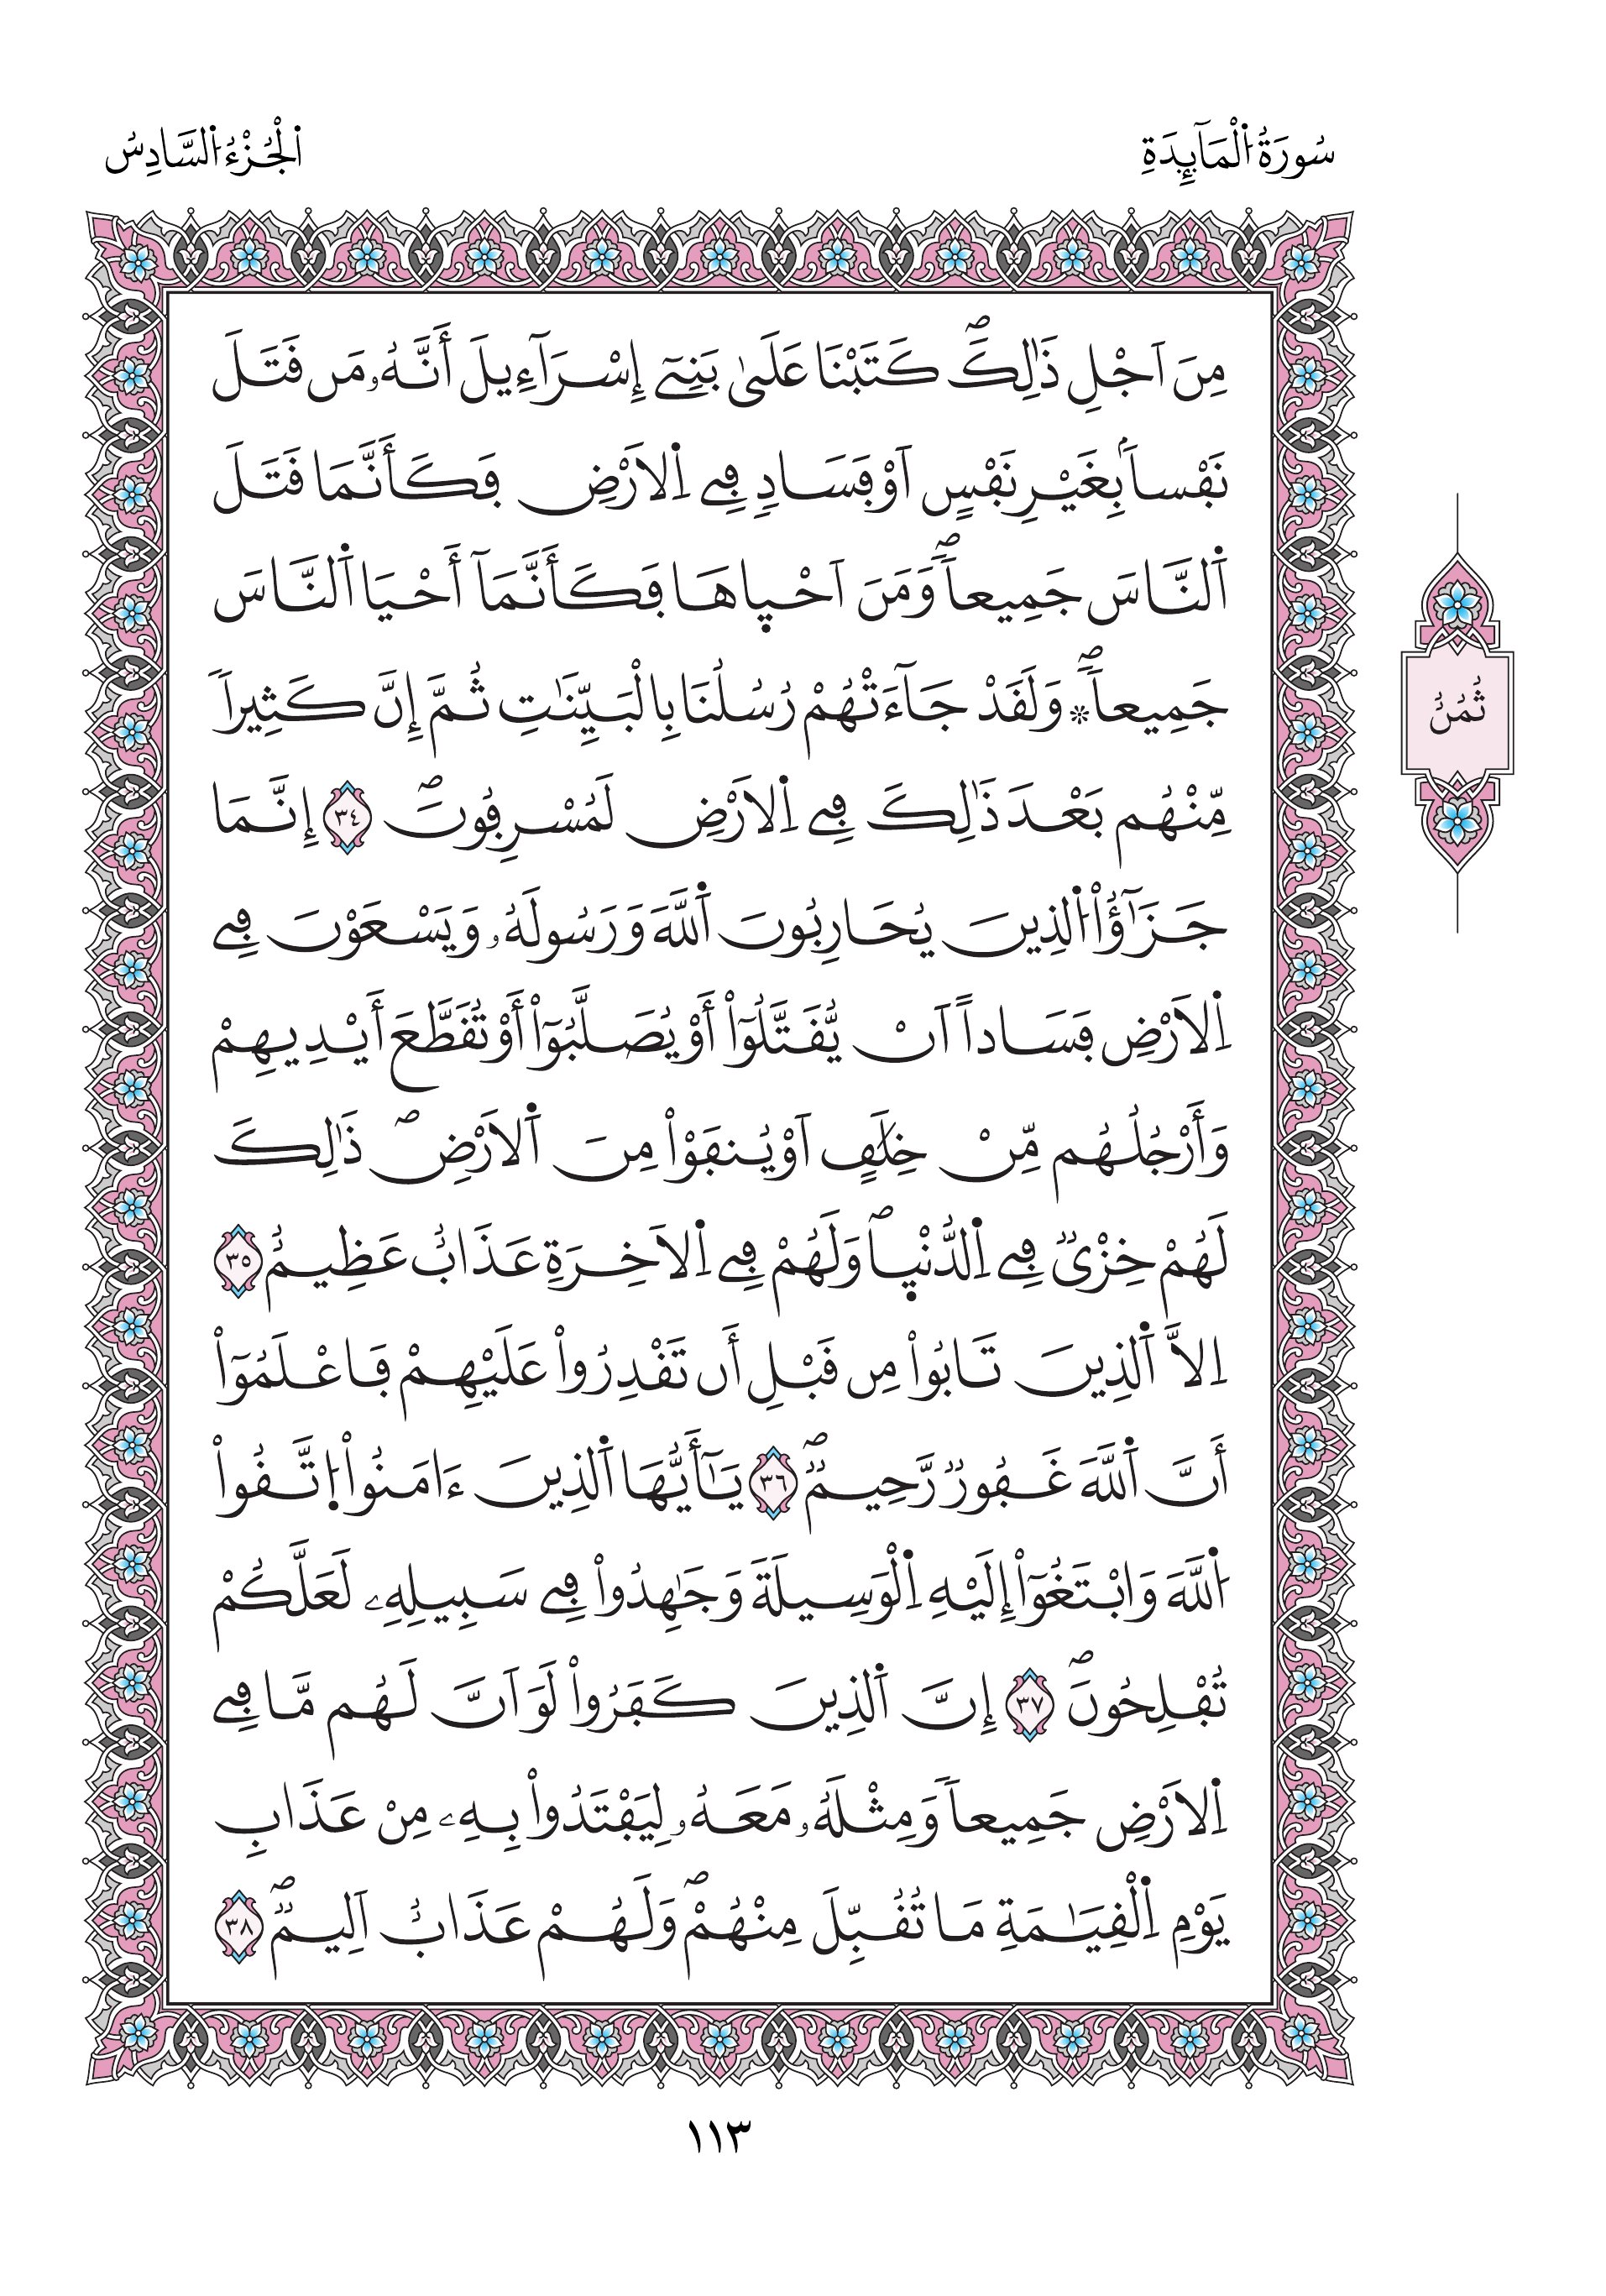 سُورَةُ اُ۬لْمَآئِدَةِ
اَ۬لْجُزْءُ اُ۬لسَّادِسُ
مِنَ اَجْلِ ذَٰلِكَۖ كَتَبْنَا عَلَىٰ بَنِےٓ إِسْرَآءِيلَ أَنَّهُۥ مَن قَتَلَ
نَفْساَۢ بِغَيْرِ نَفْسٍ اَوْ فَسَادٖ فِے اِ۬لَارْضِ فَكَأَنَّمَا قَتَلَ
اَ۬لنَّاسَ جَمِيعاٗۖ وَمَنَ اَحْي۪اهَا فَكَأَنَّمَآ أَحْيَا اَ۬لنَّاسَ
جَمِيعاٗۖ ۞ وَلَقَدْ جَآءَتْهُمْ رُسُلُنَا بِالْبَيِّنَٰتِ ثُمَّ إِنَّ كَثِيراٗ
مِّنْهُم بَعْدَ ذَٰلِكَ فِے اِ۬لَارْضِ لَمُسْرِفُونَۖ ٣٤ إِنَّمَا
جَزَٰٓؤُاْ اُ۬لذِينَ يُحَارِبُونَ اَ۬للَّهَ وَرَسُولَهُۥ وَيَسْعَوْنَ فِے
اِ۬لَارْضِ فَسَاداً اَنْ يُّقَتَّلُوٓاْ أَوْ يُصَلَّبُوٓاْ أَوْ تُقَطَّعَ أَيْدِيهِمْ
وَأَرْجُلُهُم مِّنْ خِلَٰفٍ اَوْ يُنفَوْاْ مِنَ اَ۬لَارْضِۖ ذَٰلِكَ
لَهُمْ خِزْيٞ فِے اِ۬لدُّنْي۪اۖ وَلَهُمْ فِے اِ۬لَاخِرَةِ عَذَابٌ عَظِيمٌ ٣٥
اِلَّا اَ۬لذِينَ تَابُواْ مِن قَبْلِ أَن تَقْدِرُواْ عَلَيْهِمْ فَاعْلَمُوٓاْ
أَنَّ اَ۬للَّهَ غَفُورٞ رَّحِيمٞۖ ٣٦ يَٰٓأَيُّهَا اَ۬لذِينَ ءَامَنُواْ اُ۪تَّقُواْ
اُ۬للَّهَ وَابْتَغُوٓاْ إِلَيْهِ اِ۬لْوَسِيلَةَ وَجَٰهِدُواْ فِے سَبِيلِهِۦ لَعَلَّكُمْ
تُفْلِحُونَۖ ٣٧ إِنَّ اَ۬لذِينَ كَفَرُواْ لَوَ اَنَّ لَهُم مَّا فِے
اِ۬لَارْضِ جَمِيعاٗ وَمِثْلَهُۥ مَعَهُۥ لِيَفْتَدُواْ بِهِۦ مِنْ عَذَابِ
يَوْمِ اِ۬لْقِيَٰمَةِ مَا تُقُبِّلَ مِنْهُمْۖ وَلَهُمْ عَذَابٌ اَلِيمٞۖ ٣٨
ثُمُنُ
١١٣